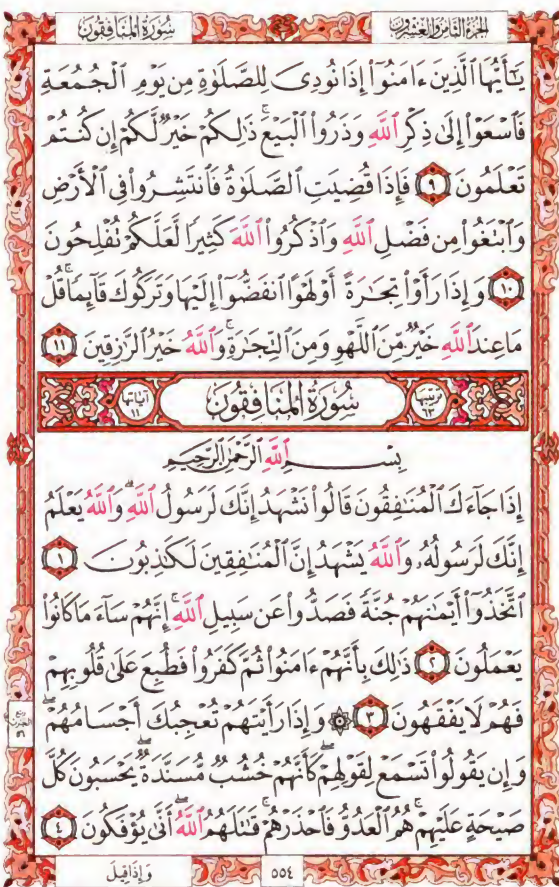 الجزء الثامن والعشرون
سُورَةُ المُنَافِقُون
يَـٰٓأَيُّهَا ٱلَّذِينَ ءَامَنُوٓا۟ إِذَا نُودِىَ لِلصَّلَوٰةِ مِن يَوْمِ ٱلْجُمُعَةِ
فَٱسْعَوْا۟ إِلَىٰ ذِكْرِ ٱللَّهِ وَذَرُوا۟ ٱلْبَيْعَ ۚ ذَٰلِكُمْ خَيْرٌ لَّكُمْ إِن كُنتُمْ
تَعْلَمُونَ ٩ فَإِذَا قُضِيَتِ ٱلصَّلَوٰةُ فَٱنتَشِرُوا۟ فِى ٱلْأَرْضِ
وَٱبْتَغُوا۟ مِن فَضْلِ ٱللَّهِ وَٱذْكُرُوا۟ ٱللَّهَ كَثِيرًا لَّعَلَّكُمْ تُفْلِحُونَ
١٠ وَإِذَا رَأَوْا۟ تِجَـٰرَةً أَوْ لَهْوًا ٱنفَضُّوٓا۟ إِلَيْهَا وَتَرَكُوكَ قَآئِمًا ۚ قُلْ
مَا عِندَ ٱللَّهِ خَيْرٌ مِّنَ ٱللَّهْوِ وَمِنَ ٱلتِّجَـٰرَةِ ۚ وَٱللَّهُ خَيْرُ ٱلرَّٰزِقِينَ ١١
ترتيبها ٦٣ سُورَةُ المُنَافِقُون آياتها ١١
بِسْمِ ٱللَّهِ ٱلرَّحْمَـٰنِ ٱلرَّحِيمِ
إِذَا جَآءَكَ ٱلْمُنَـٰفِقُونَ قَالُوا۟ نَشْهَدُ إِنَّكَ لَرَسُولُ ٱللَّهِ ۗ وَٱللَّهُ يَعْلَمُ
إِنَّكَ لَرَسُولُهُۥ وَٱللَّهُ يَشْهَدُ إِنَّ ٱلْمُنَـٰفِقِينَ لَكَـٰذِبُونَ ١
ٱتَّخَذُوٓا۟ أَيْمَـٰنَهُمْ جُنَّةً فَصَدُّوا۟ عَن سَبِيلِ ٱللَّهِ ۚ إِنَّهُمْ سَآءَ مَا كَانُوا۟
يَعْمَلُونَ ٢ ذَٰلِكَ بِأَنَّهُمْ ءَامَنُوا۟ ثُمَّ كَفَرُوا۟ فَطُبِعَ عَلَىٰ قُلُوبِهِمْ
فَهُمْ لَا يَفْقَهُونَ ٣ ۞ وَإِذَا رَأَيْتَهُمْ تُعْجِبُكَ أَجْسَامُهُمْ ۖ
وَإِن يَقُولُوا۟ تَسْمَعْ لِقَوْلِهِمْ ۖ كَأَنَّهُمْ خُشُبٌ مُّسَنَّدَةٌ ۖ يَحْسَبُونَ كُلَّ
صَيْحَةٍ عَلَيْهِمْ ۚ هُمُ ٱلْعَدُوُّ فَٱحْذَرْهُمْ ۚ قَـٰتَلَهُمُ ٱللَّهُ ۖ أَنَّىٰ يُؤْفَكُونَ ٤
٥٥٤
وَإِذَا قِيلَ